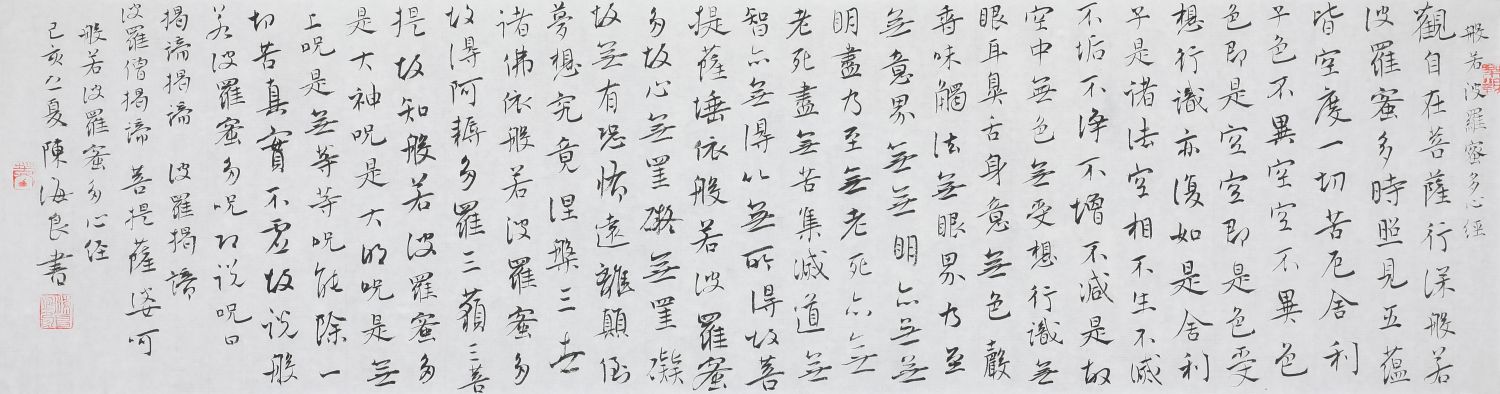 般若波羅蜜多心經
觀自在菩薩行深般若
波羅蜜多時照見五蘊
皆空度一切苦厄舍利
子色不異空空不異色
色即是空空即是色受
想行識亦復如是舍利
子是諸法空相不生不滅
不垢不淨不增不減是故
空中無色無受想行識無
眼耳鼻舌身意無色聲
香味觸法無眼界乃至
無意界無無明亦無無
明盡乃至無老死亦無
老死盡無苦集滅道無
智亦無得以無所得故菩
提薩埵依般若波羅蜜
多故心無罣礙無罣礙
故無有恐怖遠離顛倒
夢想究竟涅槃三世
諸佛依般若波羅蜜多
故得阿耨多羅三藐三菩
提故知般若波羅蜜多
是大神呪是大明呪是無
上呪是無等等呪能除一
切苦真實不虛故說般
若波羅蜜多呪即說呪曰
揭諦揭諦 波羅揭諦
波羅僧揭諦 菩提薩婆呵
般若波羅蜜多心经
己亥夏陳海良書